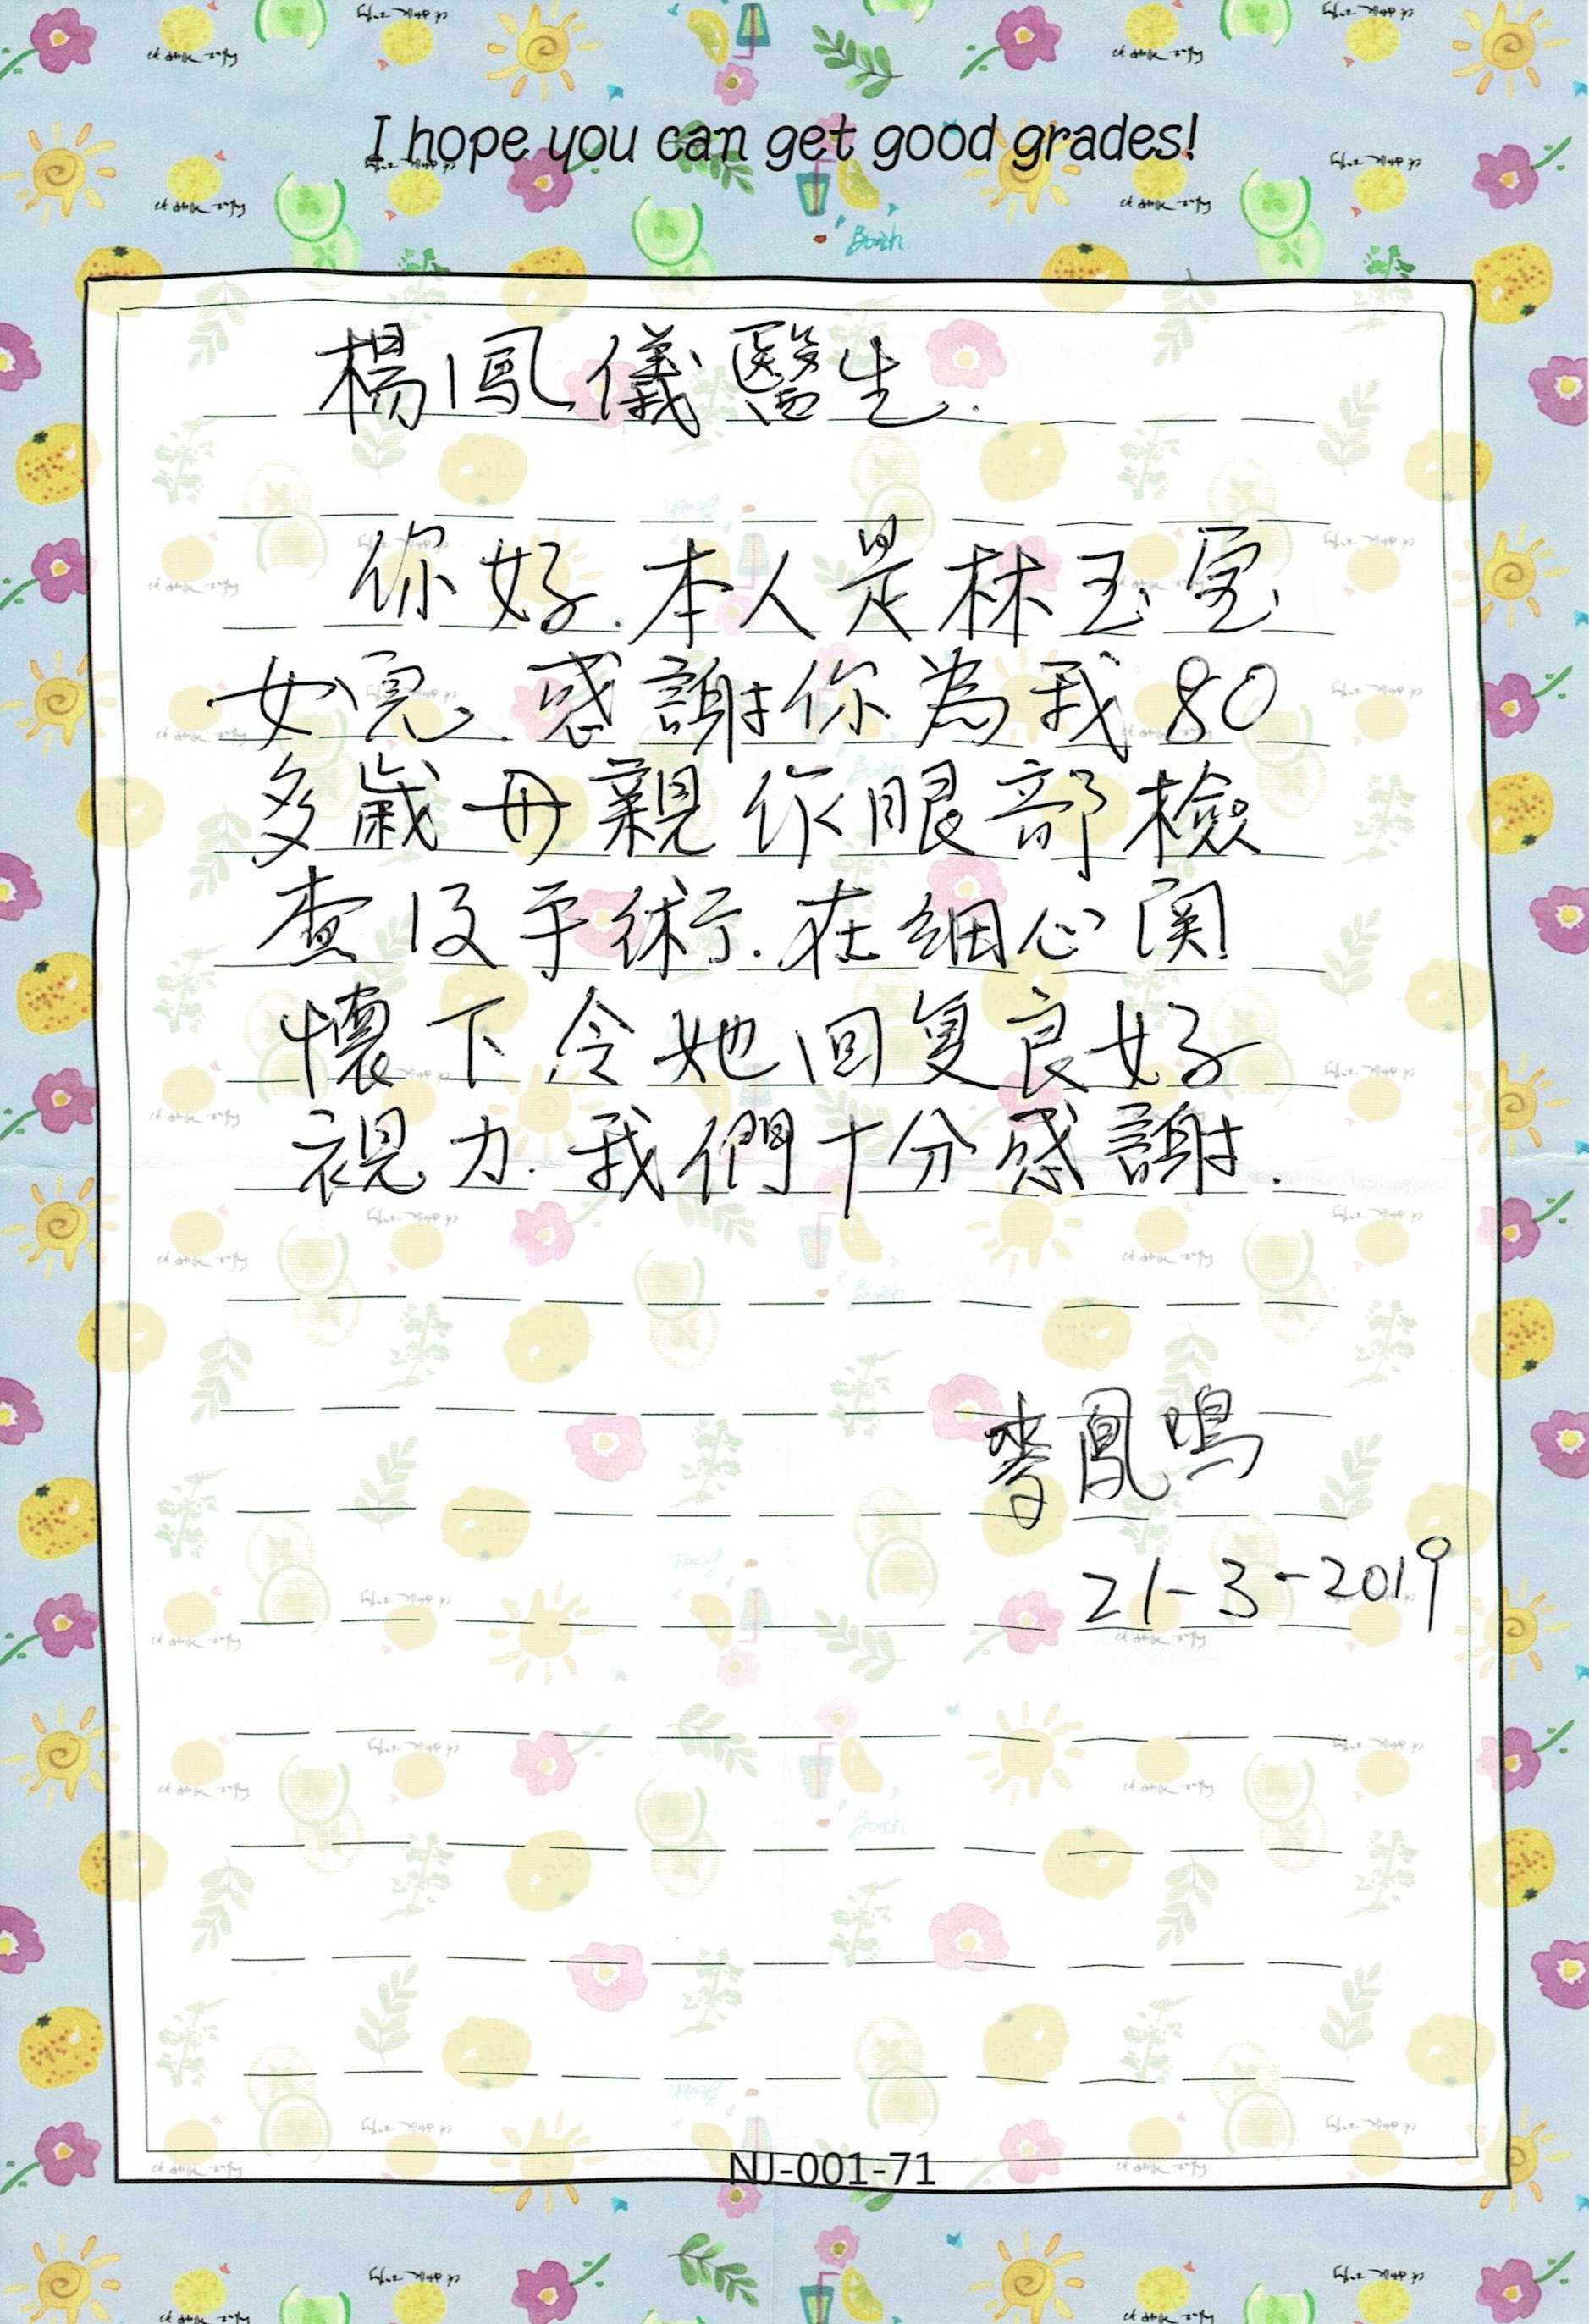 I hope you can get good grades!
楊鳳儀醫生.
你好.本人是林玉宝
女兒.感謝你為我80
多歲母親作眼部檢
查及手術.在細心関
懷下令她回复良好
視力.我們十分感謝.
麥鳳鳴
21-3-2019
NJ-001-71